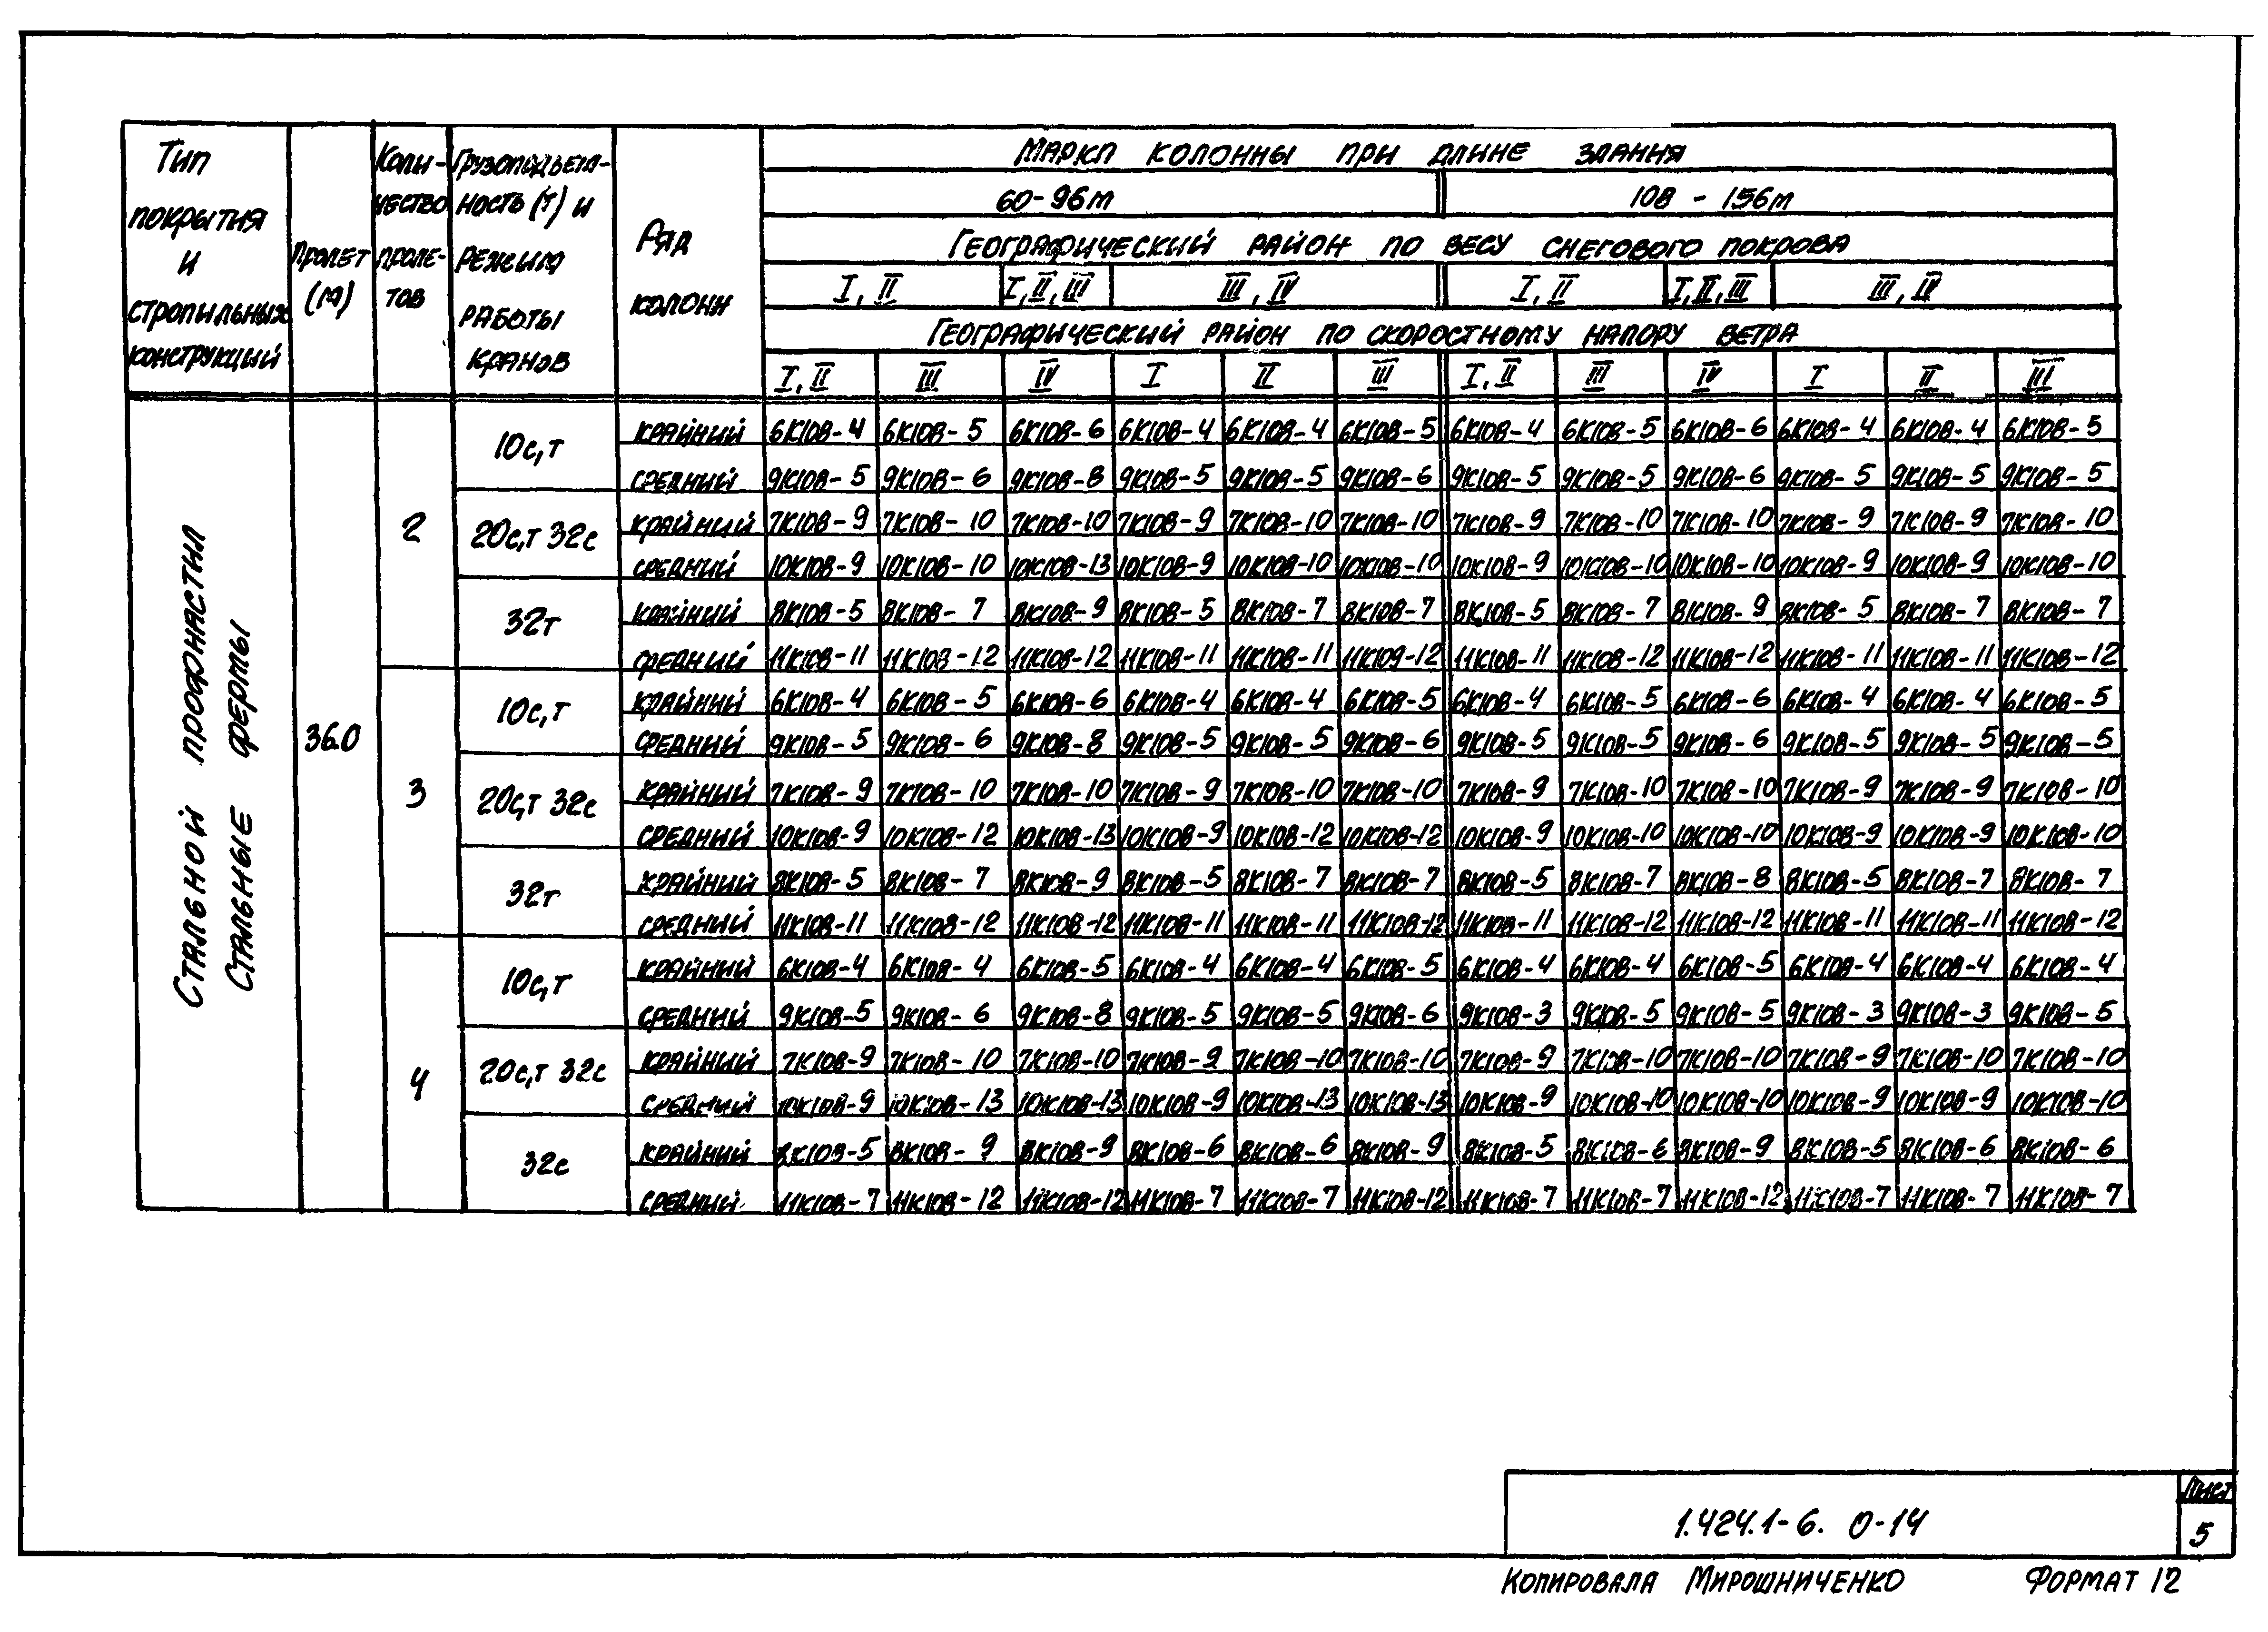 Тип покрытия и стропильных конструкций
Пролет (м)
Коли-чество проле-тов
Грузоподъем-ность (т) и режим работы кранов
Ряд колонн
Марка колонны при длине здания
60-96м 108 - 156м
Географический район по весу снегового покрова
I, II I, II, III III, IV I, II I, II, III III, IV
Географический район по скоростному напору ветра
I, II III IV I II III I, II III IV I II III
Стальной профнастил
Стальные фермы
36.0
2
10с,т
крайний 6К108-4 6К108-5 6К108-6 6К108-4 6К108-4 6К108-5 6К108-4 6К108-5 6К108-6 6К108-4 6К108-4 6К108-5
средний 9К108-5 9К108-6 9К108-8 9К108-5 9К108-5 9К108-6 9К108-5 9К108-5 9К108-6 9К108-5 9К108-5 9К108-5
20с,т 32с
крайний 7К108-9 7К108-10 7К108-10 7К108-9 7К108-10 7К108-10 7К108-9 7К108-10 7К108-10 7К108-9 7К108-9 7К108-10
средний 10К108-9 10К108-10 10К108-13 10К108-9 10К108-10 10К108-10 10К108-9 10К108-10 10К108-10 10К108-9 10К108-9 10К108-10
32т
крайний 8К108-5 8К108-7 8К108-9 8К108-5 8К108-7 8К108-7 8К108-5 8К108-7 8К108-9 8К108-5 8К108-7 8К108-7
средний 11К108-11 11К108-12 11К108-12 11К108-11 11К108-11 11К109-12 11К108-11 11К108-12 11К108-12 11К108-11 11К108-11 11К108-12
3
10с,т
крайний 6К108-4 6К108-5 6К108-6 6К108-4 6К108-4 6К108-5 6К108-4 6К108-5 6К108-6 6К108-4 6К108-4 6К108-5
средний 9К108-5 9К108-6 9К108-8 9К108-5 9К108-5 9К108-6 9К108-5 9К108-5 9К108-6 9К108-5 9К108-5 9К108-5
20с,т 32с
крайний 7К108-9 7К108-10 7К108-10 7К108-9 7К108-10 7К108-10 7К108-9 7К108-10 7К108-10 7К108-9 7К108-9 7К108-10
средний 10К108-9 10К108-12 10К108-13 10К108-9 10К108-12 10К108-12 10К108-9 10К108-10 10К108-10 10К108-9 10К108-9 10К108-10
32т
крайний 8К108-5 8К108-7 8К108-9 8К108-5 8К108-7 8К108-7 8К108-5 8К108-7 8К108-8 8К108-5 8К108-7 8К108-7
средний 11К108-11 11К108-12 11К108-12 11К108-11 11К108-11 11К108-12 11К108-11 11К108-12 11К108-12 11К108-11 11К108-11 11К108-12
4
10с,т
крайний 6К108-4 6К108-4 6К108-5 6К108-4 6К108-4 6К108-5 6К108-4 6К108-4 6К108-5 6К108-4 6К108-4 6К108-4
средний 9К108-5 9К108-6 9К108-8 9К108-5 9К108-5 9К108-6 9К108-3 9К108-5 9К108-5 9К108-3 9К108-3 9К108-5
20с,т 32с
крайний 7К108-9 7К108-10 7К108-10 7К108-9 7К108-10 7К108-10 7К108-9 7К108-10 7К108-10 7К108-9 7К108-10 7К108-10
средний 10К108-9 10К108-13 10К108-13 10К108-9 10К108-13 10К108-13 10К108-9 10К108-10 10К108-10 10К108-9 10К108-9 10К108-10
32с
крайний 8К108-5 8К108-9 8К108-9 8К108-6 8К108-6 8К108-9 8К108-5 8К108-6 8К108-9 8К108-5 8К108-6 8К108-6
средний 11К108-7 11К108-12 11К108-12 11К108-7 11К108-7 11К108-12 11К108-7 11К108-7 11К108-12 11К108-7 11К108-7 11К108-7
1.424.1-6. 0-14
Лист
5
Копировала Мирошниченко Формат 12